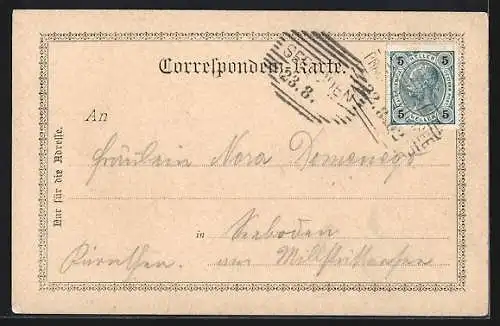 Correspondenz-Karte.
5 5
5 5
23.8.
22.8.
An
Nur für die Adresse.
Fräulein Nora Domenego
in Seeboden
Kärnthen. am Millstättersee